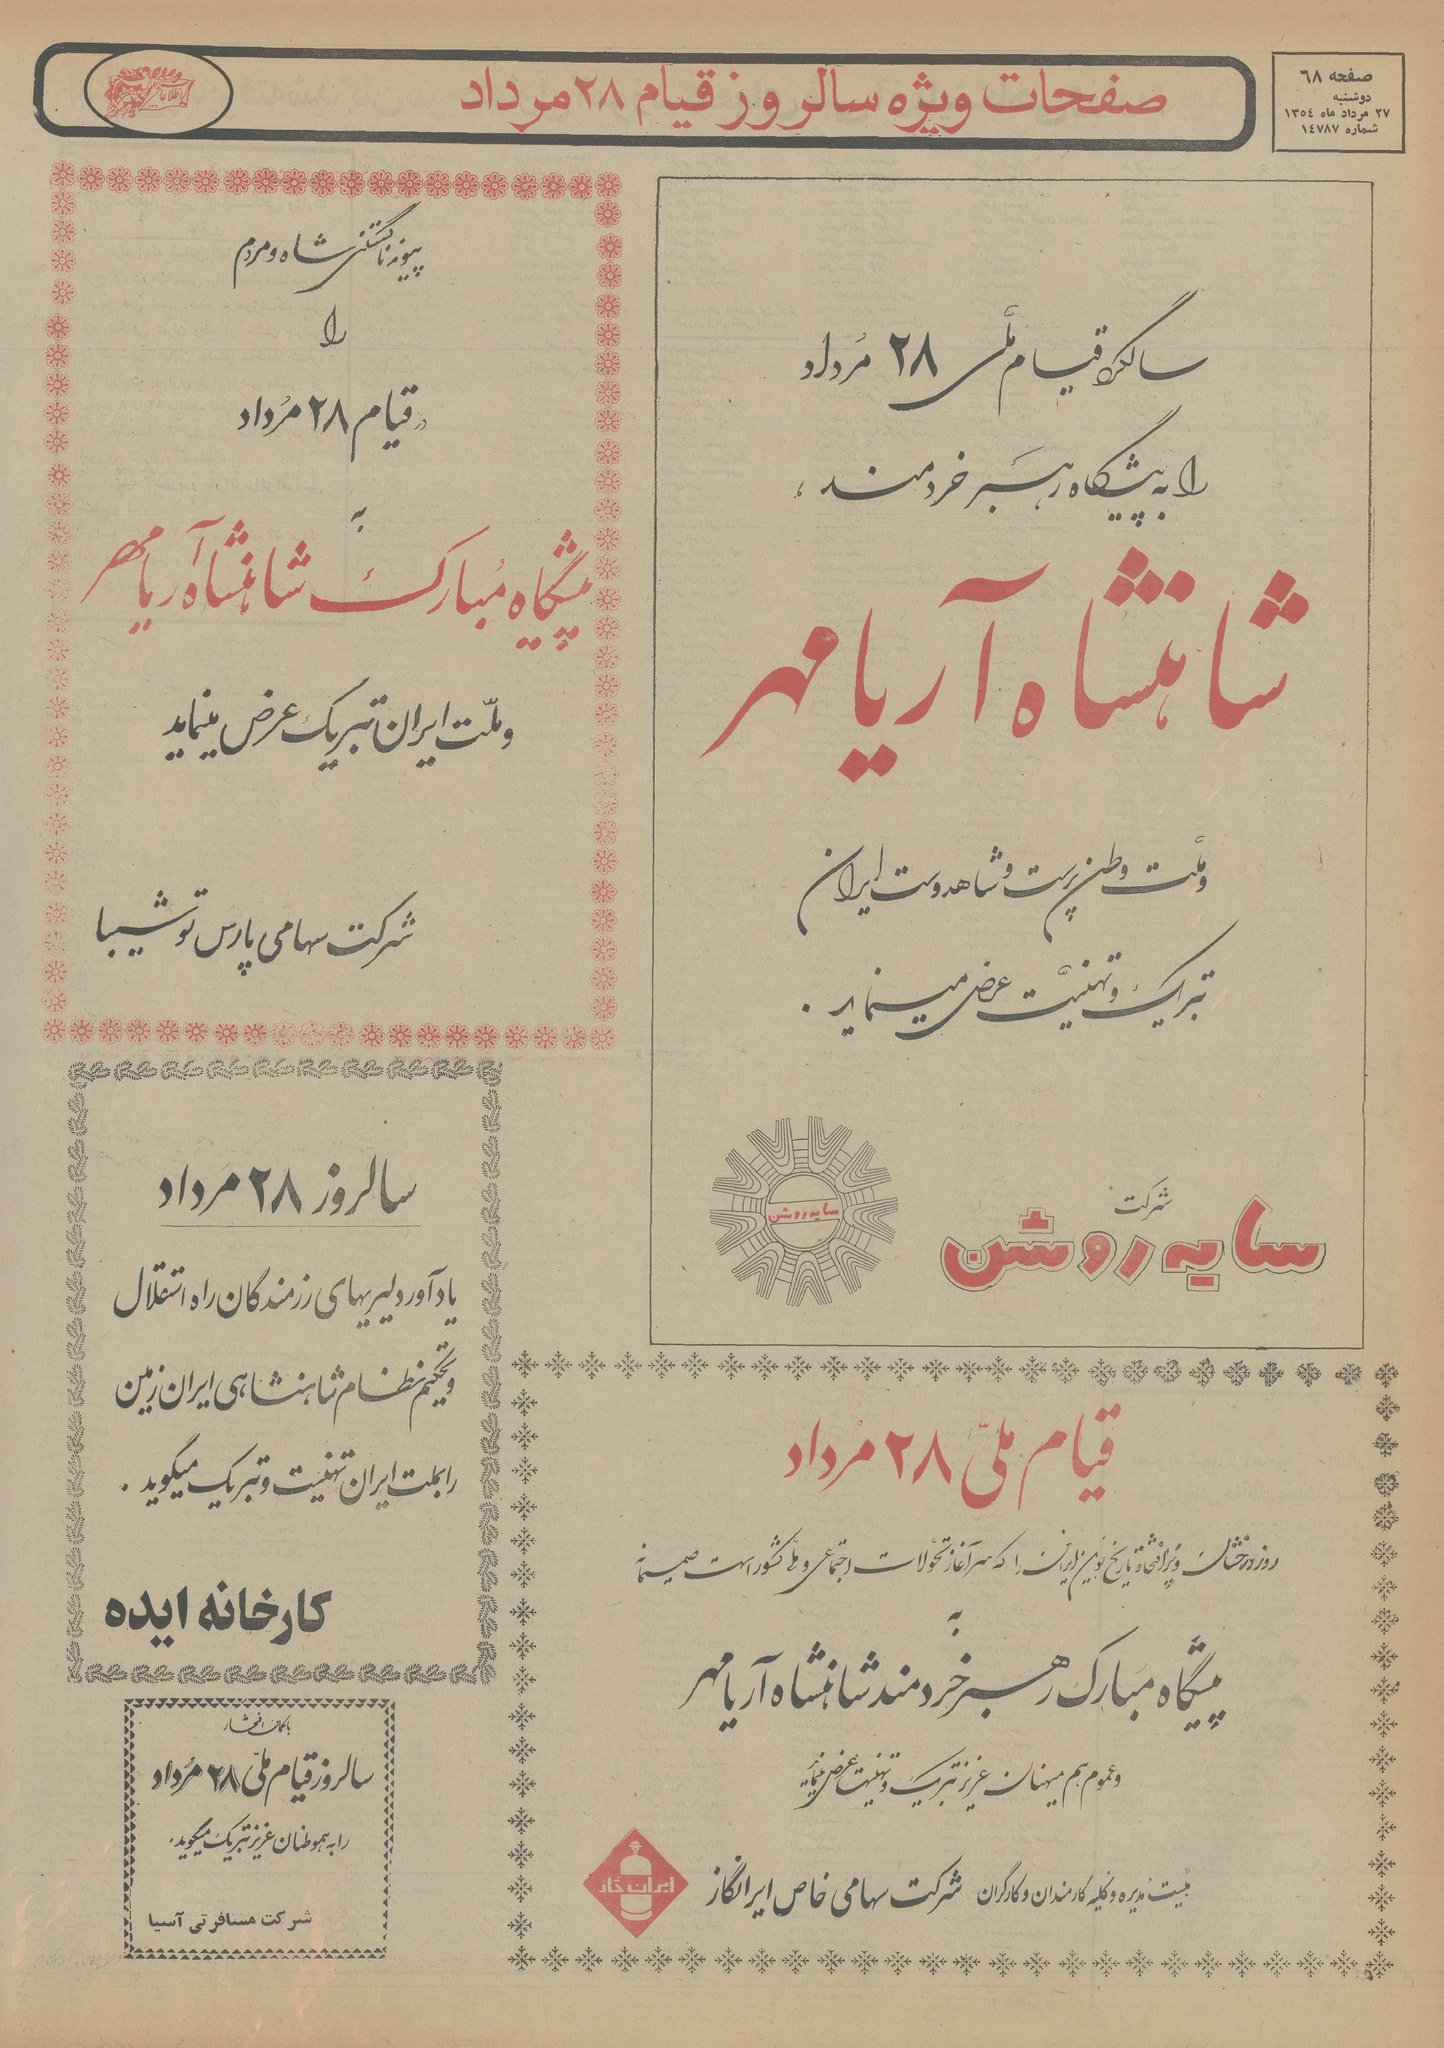 صفحه ۶۸
دوشنبه
۲۷ مرداد ماه ۱۳۵۴
شماره ۱۴۷۸۷
صفحات ویژه سالروز قیام ۲۸ مرداد
اطلاعات
سالگرد قیام ملّی ۲۸ مرداد
را به پیشگاه رهبر خردمند ،
شاهنشاه آریامهر
و ملّت وطن پرست و شاهدوست ایران
تبریک و تهنیّت عرض مینماید .
شرکت
سایه روشن
سایه روشن
پیوند ناگسستنی شاه و مردم
را
در قیام ۲۸ مرداد
به
پیشگاه مبارک شاهنشاه آریامهر
و ملّت ایران تبریک عرض مینماید
شرکت سهامی پارس توشیبا
سالروز ۲۸ مرداد
یادآور دلیریهای رزمندگان راه استقلال
و تحکیم نظام شاهنشاهی ایران زمین
را بملت ایران تهنیت و تبریک میگوید .
کارخانه ایده
قیام ملّی ۲۸ مرداد
روز درخشان و پرافتخار تاریخ نوین ایران را که سرآغاز تحوّلات اجتماعی و ملّی کشور است صمیمانه
به
پیشگاه مبارک رهبر خردمند شاهنشاه آریامهر
و عموم هم میهنان عزیز تبریک و تهنیت عرض مینماید
هیئت مدیره و کلیه کارمندان و کارگران شرکت سهامی خاص ایرانگاز
ایران گاز
با کمال افتخار
سالروز قیام ملّی ۲۸ مرداد
را به هموطنان عزیز تبریک میگوید.
شرکت مسافرتی آسیا